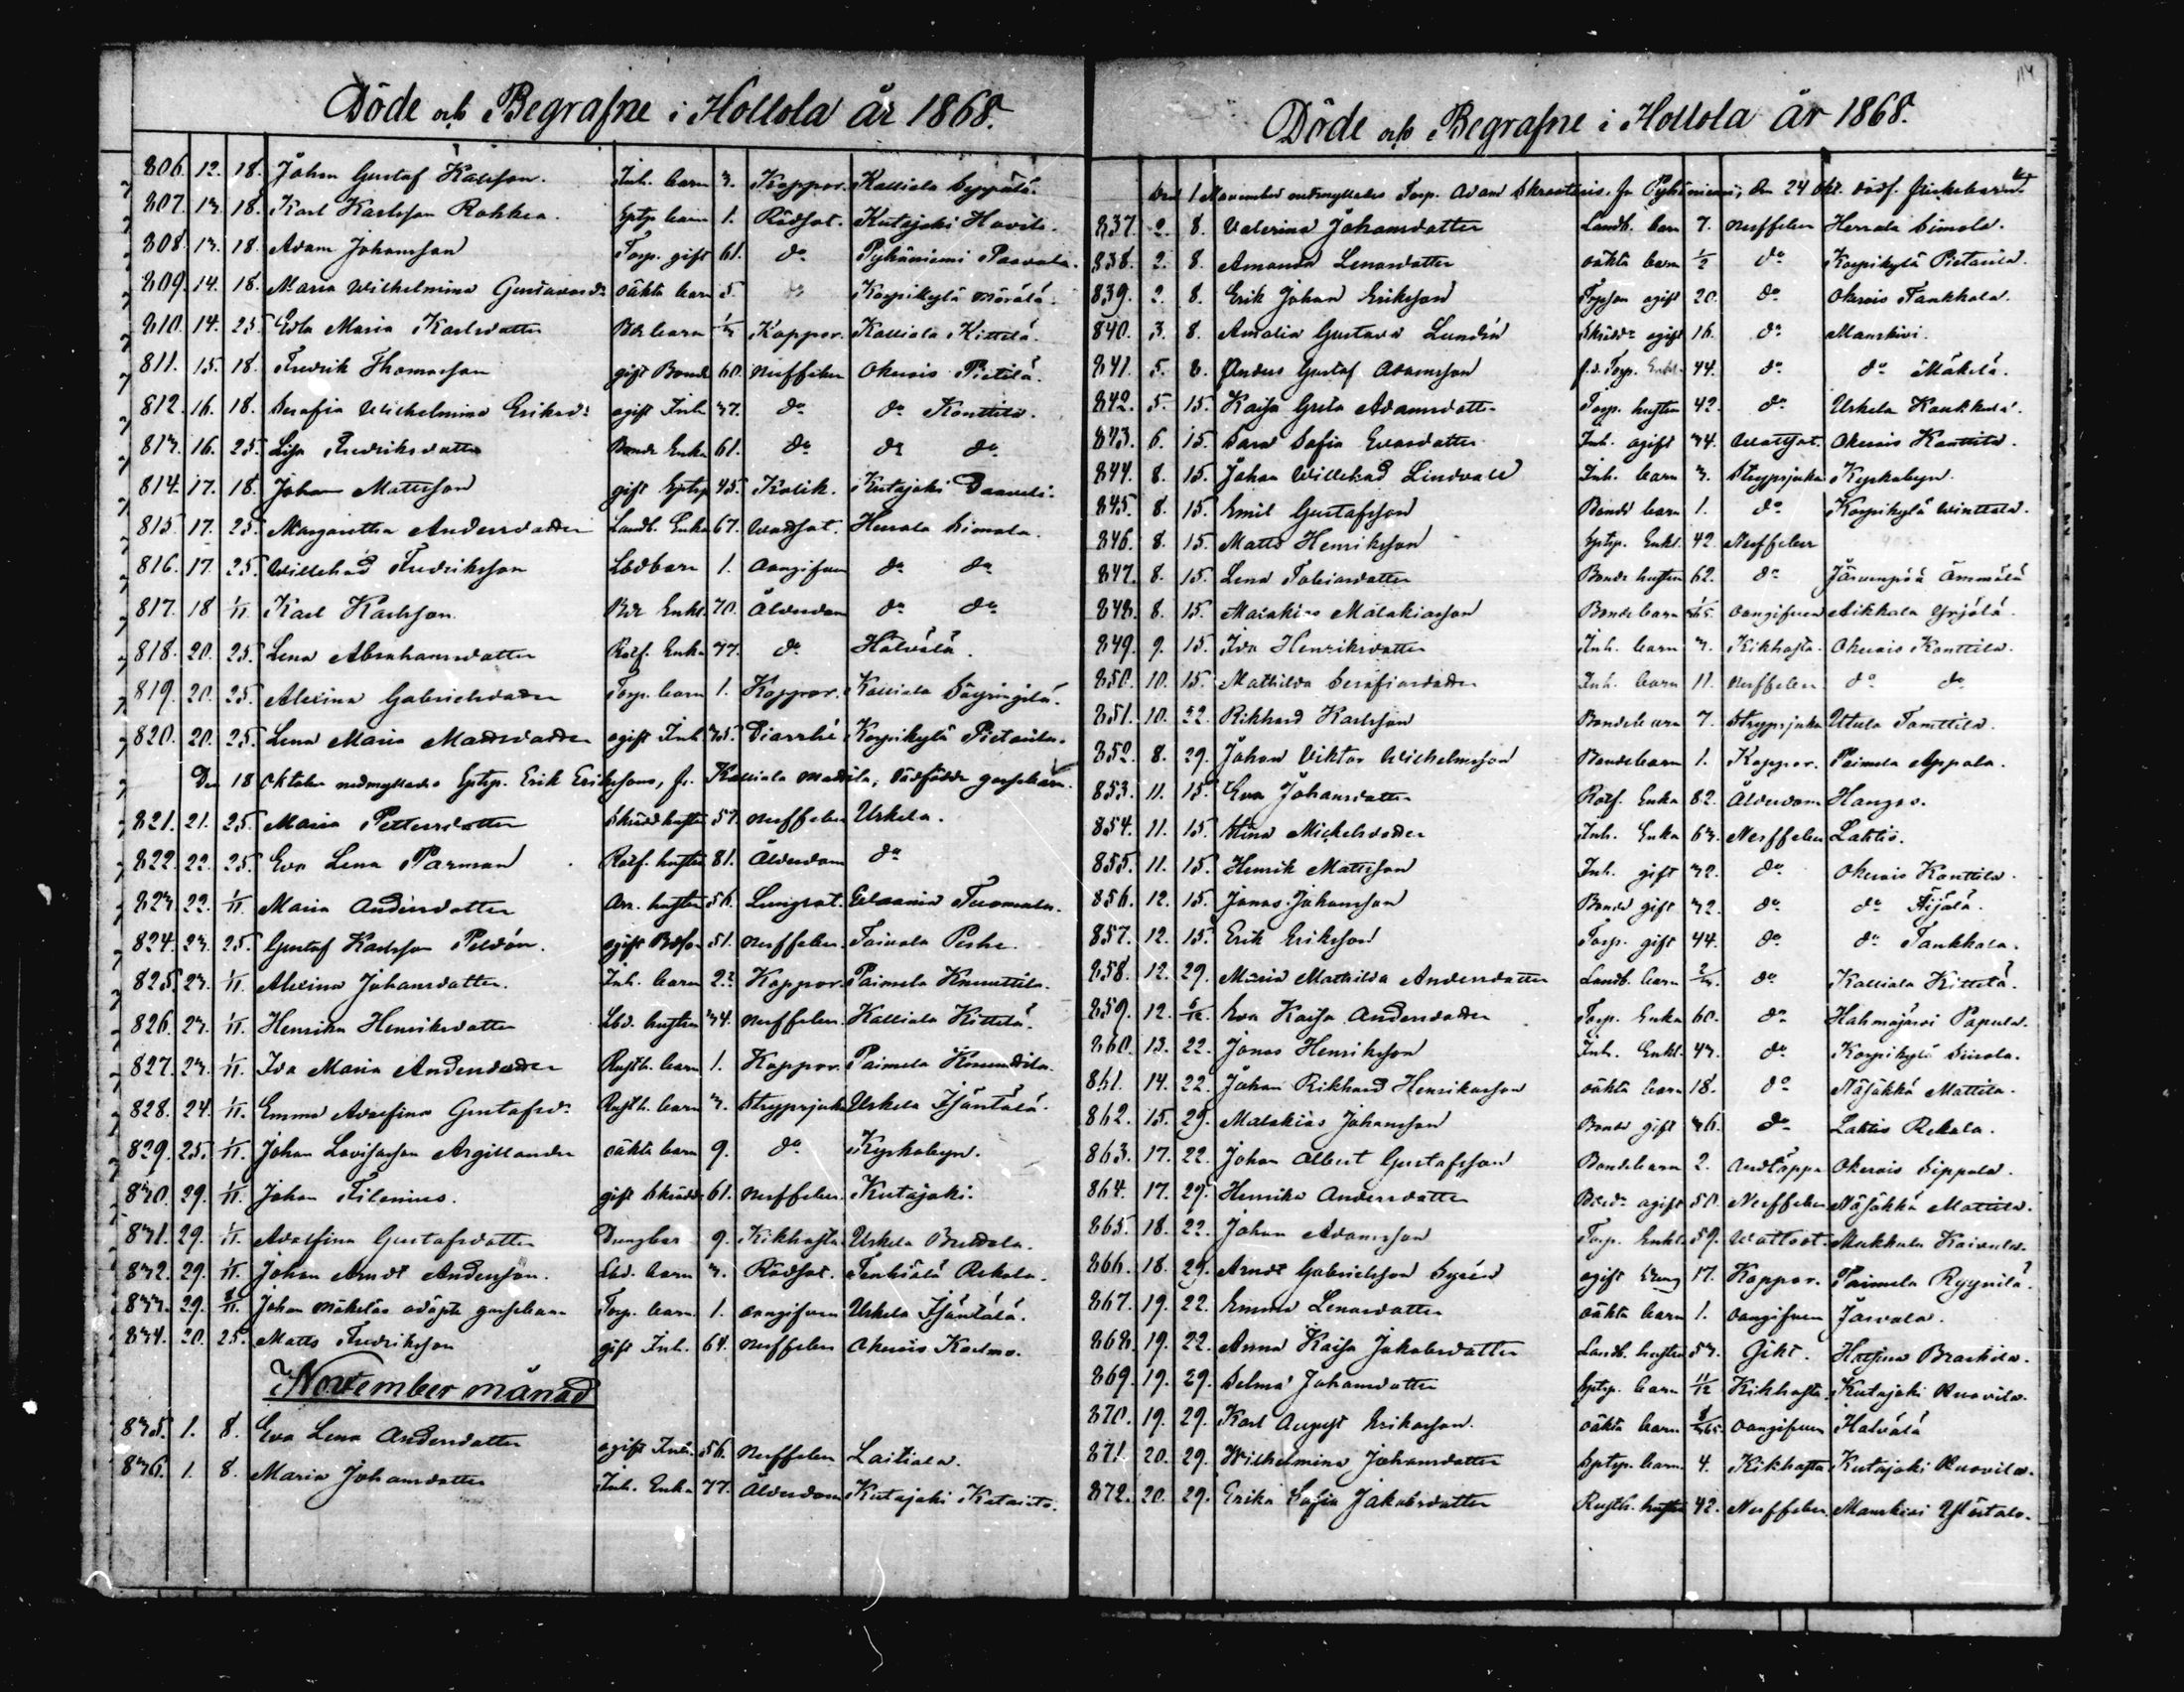 Döde och Begrafne i Hollola år 1868.
806. 12. 18. Johan Gustaf Karlsson. Inh. barn 3. Koppor. Kalliala Seppälä.
807. 13. 18. Karl Karlsson Rokkea. Sytp barn 1. Rödsot. Kutajoki Hovila.
808. 13. 18. Adam Johansson Torp. gift 61. do Pyhäniemi Paavola.
809. 14. 18. Maria Wilhelmina Gustavasdr oäkta barn 5. Korpikylä Mörölä.
810. 14. 25. Edla Maria Karlsdotter Bde barn Koppor. Kalliala Kittelä.
811. 15. 18. Fredrik Thomasson gift Bonde 60. Nerffeber Okerois Pietilä.
812. 16. 18. Serafia Wilhelmina Eriksdr ogift Inh. 37. do do Konttila.
813. 16. 25. Lisa Fredriksdotter Bonde Enka 61. do do do
814. 17. 18. Johan Mattsson gift 45. Kolik. Kutajoki Daaveli.
815. 17. 25. Margaretha Andersdotter Landb. Enka 67. Wattsot. Herrala Simola.
816. 17. 25. Willehad Fredriksson Lbdbarn 1. Oangifven do do
817. 18 1/11. Karl Karlsson. Bde Enkl. 70. Ålderdom do do
818. 20. 25. Lena Abrahamsdotter Rotf. Enka 77. do Hälvälä.
819. 20. 25. Alexina Gabrielsdotter Torp. barn 1. Koppor. Kalliala
820. 20. 25. Lena Maria Mattsdotter ogift Inh. 35. Diarrhé Korpikylä Pietarila.
Den 18 Oktober nedmyllades Erik Erikssons, fr. Kalliala Mattila, dödfödde gossebarn.
821. 21. 25. Maria Pettersdotter Skrädd hustru 57. Nerffeber Uskela.
822. 22. 25. Eva Lena Parman Rotf. hustru 81. Ålderdom do
823. 22. 1/11. Maria Andersdotter hustru 56. Lungsot. Tuomala.
824. 23. 25. Gustaf Karlsson Peldán. ogift 51. Nerffeber. Toivola Peshe
825. 23. 1/11. Alexina Johansdotter. Inh. barn 2. Koppor. Paimela Knuuttila.
826. 23. 1/11. Henrika Henriksdotter Lbd. hustru 34. Nerffeber. Kalliala Kittelä.
827. 23. 1/11. Ida Maria Andersdotter Rusth. barn 1. Koppor. Paimela Knuuttila.
828. 24. 1/11. Emma Adolfina Gustafsdr Rusth. barn 3. Strypsjuka Uskela Isäntälä.
829. 25. 1/11. Johan Lovisasson Argillander oäkta barn 9. do Kyrkobyn.
830. 29. 1/11. Johan Filenius. gift Skrädd. 61. Nerffeber. Kutajoki.
831. 29. 1/11. Adolfina Gustafsdotter 9. Kikhosta Uskela
832. 29. 1/11. Johan Arndt Andersson. Lbd. barn 3. Rödsot. Tenhiälä Rekola.
833. 29. 8/11. Johan Mäkeläs odöpte gossebarn Torp. barn. 1. Oangifven Uskela Isäntälä.
834. 20. 25. Matts Fredriksson gift Inh. 64. Nerffeber Okerois
November månad
835. 1. 8. Eva Lena Andersdotter ogift Inh. 56. Nerffeber Laitiala.
836. 1. 8. Maria Johansdotter Inh. Enka 77. Ålderdom Kutajoki Kataisto.
114
Döde och Begrafne i Hollola år 1868.
Den 1 November nedmyllades Torp. Adam fr Pyhäniemi, den 24 Okt. dödf. flickebarn.
837. 2. 8. Valerina Johansdotter Landb. barn 7. Nerffeber Herrala Simola.
838. 2. 8. Amanda Lenasdotter oäkta barn 1/2 do Korpikylä Pietarila.
839. 2. 8. Erik Johan Eriksson Torpson ogift 20. do Okerois Tankkala.
840. 3. 8. Amalia Gustava Lundén Skräddr ogift 16. do Manskivi.
841. 5. 8. Anders Gustaf Adamsson f.d. Torp. Enkl. 44. do do Mäkelä.
842. 5. 15. Kaisa Greta Adamsdotter Torp. hustru 42. do Uskela Kaukkola.
843. 6. 15. Sara Sofia Evasdotter Inh. ogift 34. Wattsot. Okerois Konttila.
844. 8. 15. Johan Willehad Lindvall Inh. barn 3. Strypsjuka Kyrkobyn.
845. 8. 15. Emil Gustafsson Bonde barn 1. do Korpikylä Winttala.
846. 8. 15. Matts Henriksson Enkl. 42. Nerffeber
847. 8. 15. Lena Tobiasdotter Bonde hustru 62. do Järvenpää Ämmälä
848. 8. 15. Malakias Malakiasson Bonde barn Oangifven Aikkala Yrjölä.
849. 9. 15. Ida Henriksdotter Inh. barn 3. Kikhosta. Okerois Konttila.
850. 10. 15. Mathilda Serafiasdotter Inh. barn 11. Nerffeber do do
851. 10. 22. Rikhard Karlsson Bondebarn 7. Strypsjuka Utula Tanttila.
852. 8. 29. Johan Viktor Wilhelmsson Bondebarn 1. Koppor. Paimela Uppala.
853. 11. 15. Eva Johansdotter Rotf. Enka 82. Ålderdom
854. 11. 15. Stina Michelsdotter Inh. Enka 63. Nerffeber Lahtis.
855. 11. 15. Henrik Mattsson Inh. gift 32. do Okerois Konttila.
856. 12. 15. Jonas Johansson Bonde gift 32. do do Äijälä.
857. 12. 15. Erik Eriksson Torp. gift 44. do do Tankkala.
858. 12. 29. Maria Mathilda Andersdotter Landb. barn do Kalliala Kittelä.
859. 12. 6/12. Eva Kaisa Andersdotter Torp. Enka 60. do Hahmajärvi Papula.
860. 13. 22. Jonas Henriksson Inh. Enkl. 43. do Korpikylä
861. 14. 22. Johan Rikhard Henrikasson oäkta barn 18. do Näsäkkä Mattila.
862. 15. 29. Malakias Johansson Bonde gift 36. do Lahtis Rekola.
863. 17. 22. Johan Albert Gustafsson Bondebarn 2. Andtäppa Okerois Sippola.
864. 17. 29. Henrika Andersdotter ogift 50. Nerffeber Näsäkkä Mattila.
865. 18. 22. Johan Adamsson Torp. Enkl. 59. Wattsot Mukkula
866. 18. 29. Arndt Gabrielsson Syrén ogift 17. Koppor. Paimela Ryynilä.
867. 19. 22. Emma Lenasdotter oäkta barn 1. Oangifven Jarvala.
868. 19. 22. Anna Kaisa Jakobsdotter Landb. hustru 53. Gikt.
869. 19. 29. Selma Johansdotter barn 11/12 Kikhosta. Kutajoki
870. 19. 29. Karl August Erikasson. oäkta barn 8/365 Oangifven Hälvälä
871. 20. 29. Wilhelmina Johansdotter barn 4. Kikhosta Kutajoki
872. 20. 29. Erika Sofia Jakobsdotter Rusth. hustru 42. Nerffeber. Manskivi